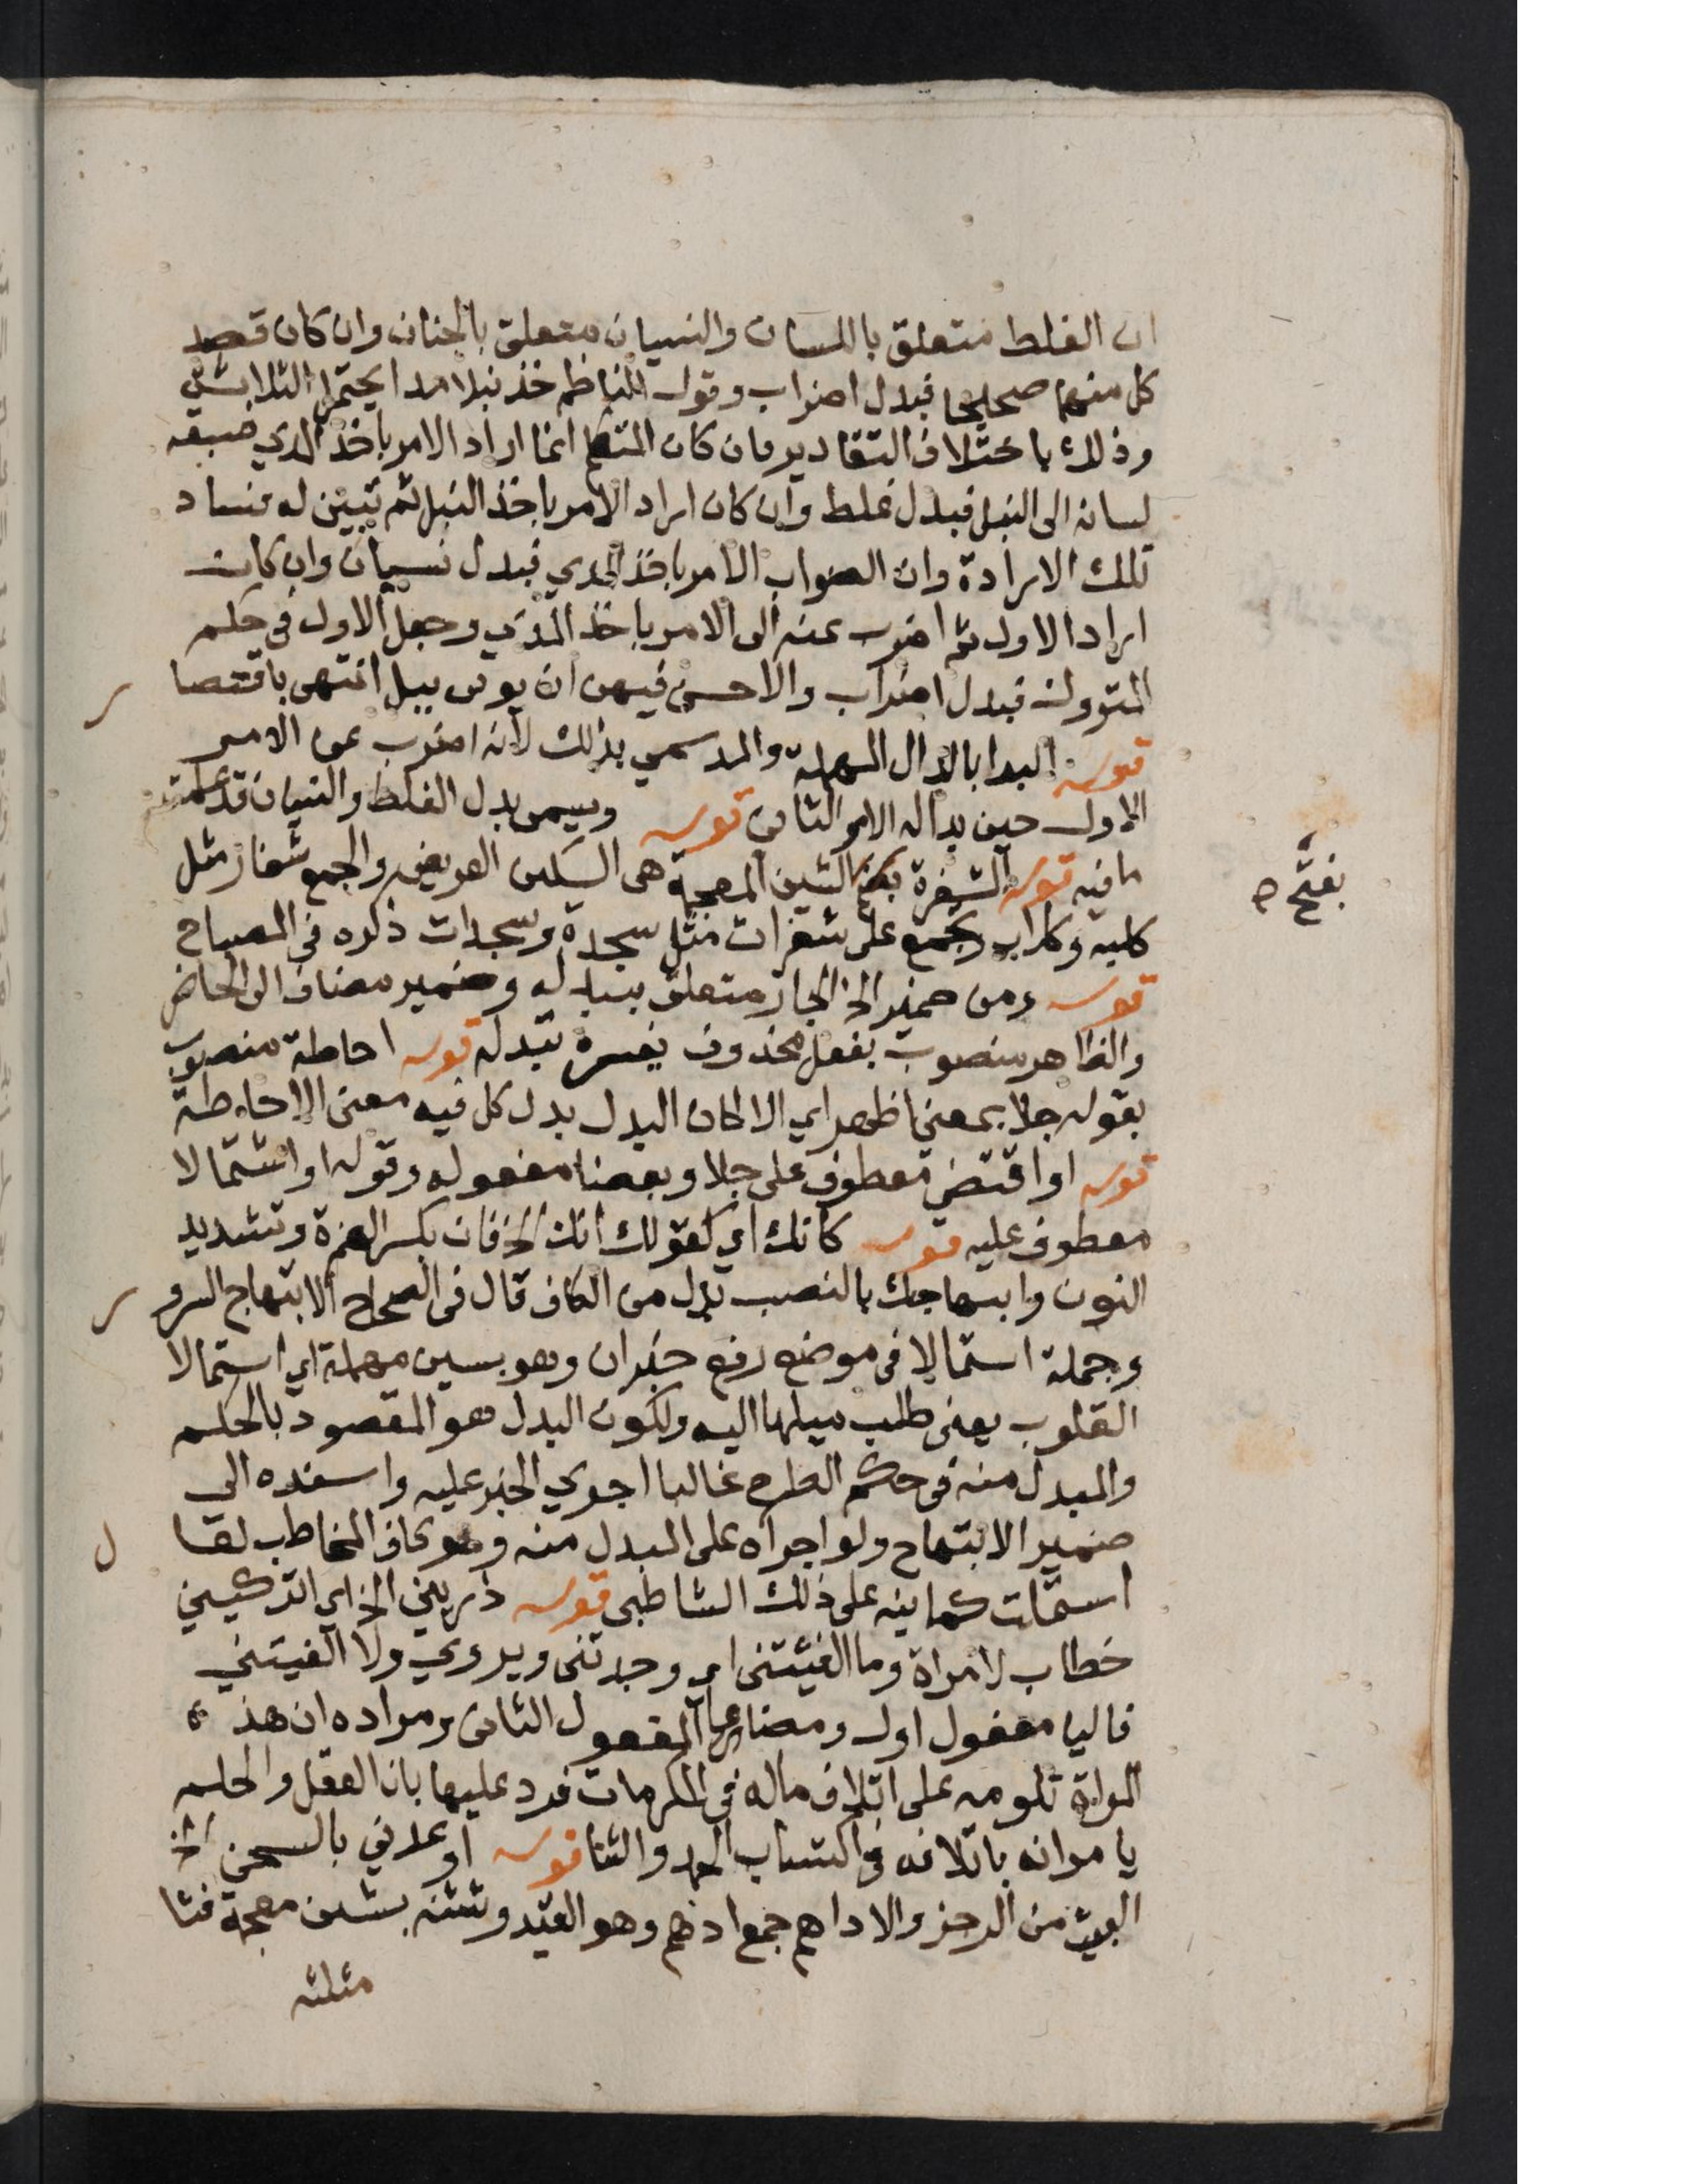 ان الغلط متعلق باللسان والنسيان متعلق بالجنان وان كان قصد
كل منهما صحيحا فبدل اضراب وقول الناظم خذ نبلا مدا يحتمل الثلاثة
وذلك باختلاف التقادير فان كان المتكلم انما اراد الامر باخذ المدي فسبقه
لسانه الى النبل فبدل غلط وان كان اراد الامر باخذ النبل ثم تبين له فساد
تلك الارادة وان الصواب الامر باخذ المدي فبدل نسيان وان كان
اراد الاول ثم اضرب عنه الى الامر باخذ المدي وجعل الاول في حكم
المتروك فبدل اضراب والاحسن فيهن ان يوتى ببل انتهى باقتصا
ر
قوله البدا بالدال المهملة والمد سمي بذلك لانه اضرب عن الامر
الاول حين بدا له الامر الثاني قوله ويسمى بدل الغلط والنسيان قد علمت
ما فيه قوله الشفرة الشين المعجمة هى السكين العريض والجمع شفار مثل
بفتح صح
كلبه وكلاب ويجمع على شفرات مثل سجدة وسجدات ذكره في المصباح
قوله ومن ضمير الخ الجار متعلق بتبدله وضمير مضاف الى الحاضر
والظاهر منصوب بفعل محذوف يفسره تبدله قوله احاطة منصوب
بقوله جلا بمعنى اظهر اي الا ان كان البدل بدل كل فيه معنى الاحاطة
قوله او اقتضى معطوف على جلا وبعضا مفعوله وقوله او اشتمالا
معطوف عليه قوله كانك اي كقولك انك الخ فان بكسر الهمزة وتشديد
النون وابتهاجك بالنصب بدل من الكاف قال في الصحاح الابتهاج السرو
ر
وجملة استمالا في موضع رفع خبر ان وهو بسين مهملة اي استمالا
القلوب يعني طلب ميلها اليه ولكون البدل هو المقصود بالحكم
والمبدل منه في حكم الطرح غالبا اجري الخبر عليه واسنده الى
ضمير الابتهاج ولو اجراه على المبدل منه وهو كاف المخاطب لقا
ل
استملت كما نبه على ذلك الشاطبي قوله ذريني الخ اي اتركيني
خطاب لامراة وما الفيتني اي وجدتني ويروي ولا الفيتني
فاليا مفعول اول ومضاعا المفعول الثاني ومراده ان هذه
المراة تلومه على اتلاف ماله في المكرمات فرد عليها بان العقل والحلم
يامرانه باتلافه في اكتساب الحمد والثنا قوله اوعدني بالسجن الخ
البيت من الرجز والاداهم جمع ادهم وهو القيد وشثنه بشين معجمة فثا
مثلثه